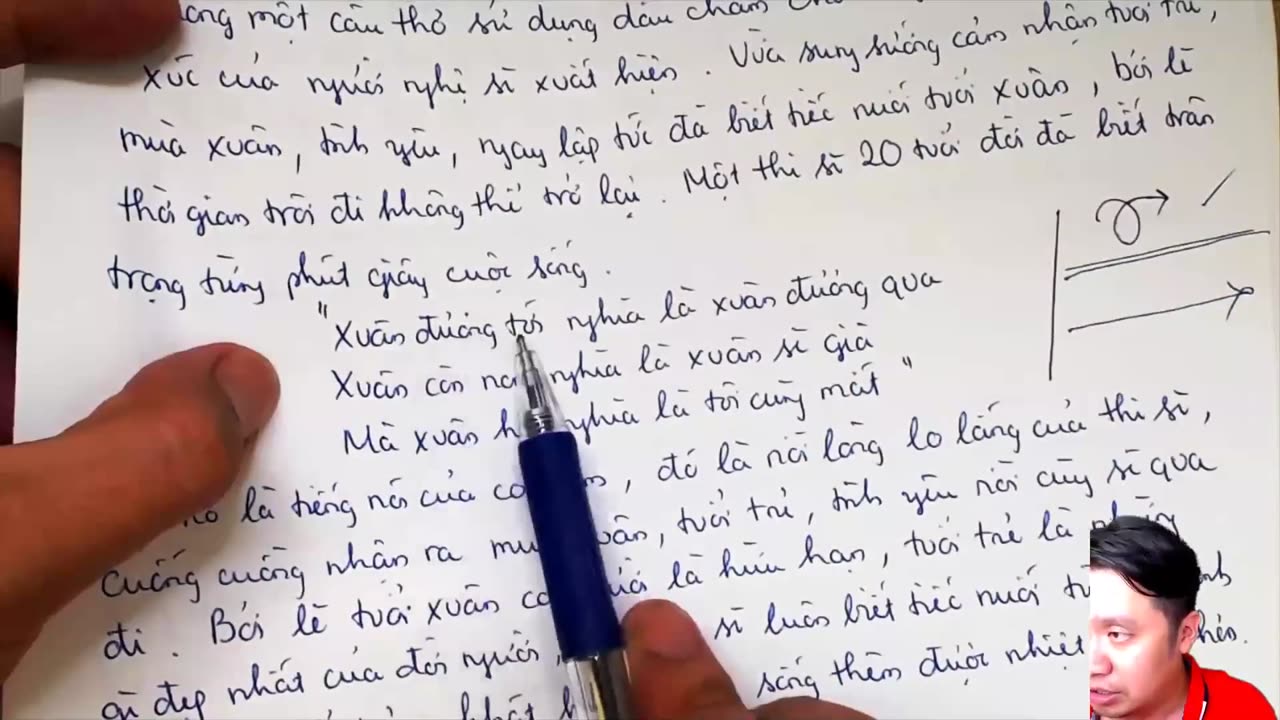 một câu thơ sử dụng dấu chấm
xúc của người nghệ sĩ xuất hiện. Vừa sung sướng cảm nhận tuổi trẻ,
mùa xuân, tình yêu, ngay lập tức đã biết tiếc nuối tuổi xuân, bởi lẽ
thời gian trôi đi không thể trở lại. Một thi sĩ 20 tuổi đời đã biết trân
trọng từng phút giây cuộc sống.
"Xuân đương tới nghĩa là xuân đương qua
Xuân còn nghĩa là xuân sẽ già
Mà xuân nghĩa là tôi cũng mất"
là tiếng nói của, đó là nỗi lòng lo lắng của thi sĩ,
cuống cuồng nhận ra, tuổi trẻ, tình yêu rồi cũng sẽ qua
đi. Bởi lẽ tuổi xuân là hữu hạn, tuổi trẻ là
gì đẹp nhất của đời người, sĩ luôn biết tiếc nuối
sống thêm được